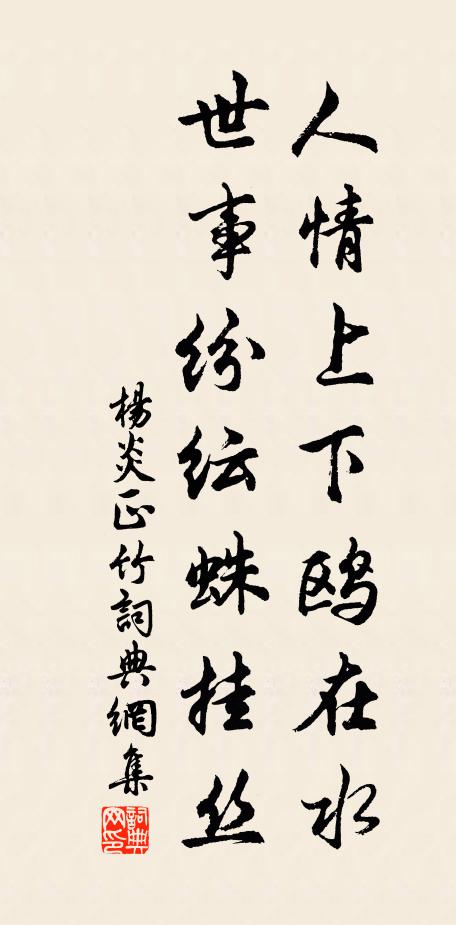 人情上下鸥在水
世事纷纭蛛挂丝
楊炎正竹詞典網集
詞典网印